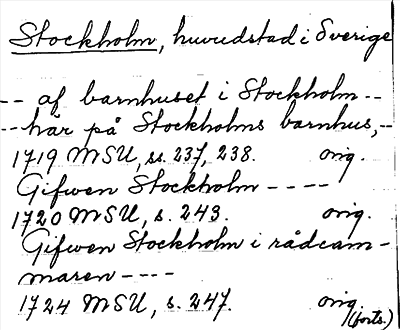 Stockholm, huvudstad i Sverige
-- af barnhuset i Stockholm --
-- här på Stockholms barnhus, --
1719 MSU, ss. 237, 238. orig.
Gifwen Stockholm ----
1720 MSU, s. 243. orig.
Gifwen Stockholm i rådcam-
maren ----
1724 MSU, s. 247. orig.
(forts.)